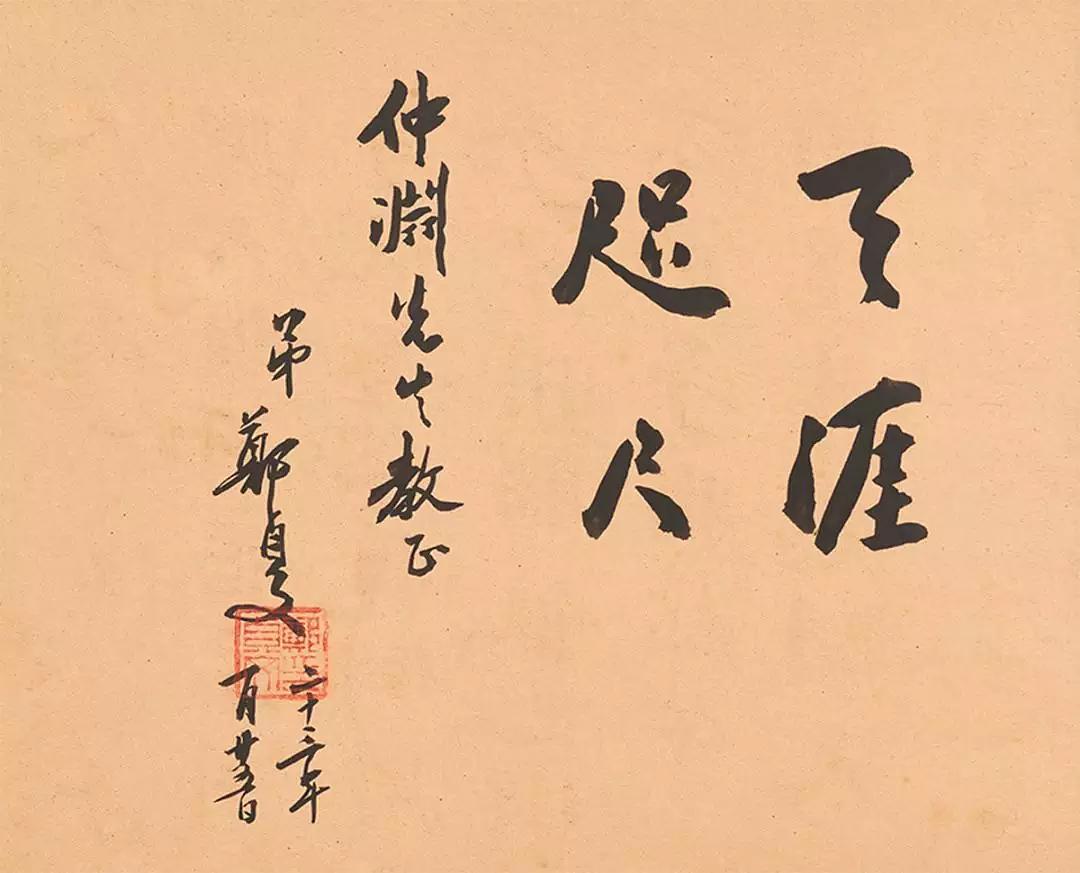 天涯
咫尺
仲淵先生教正
弟鄭貞文
二十三年
一月廿五日